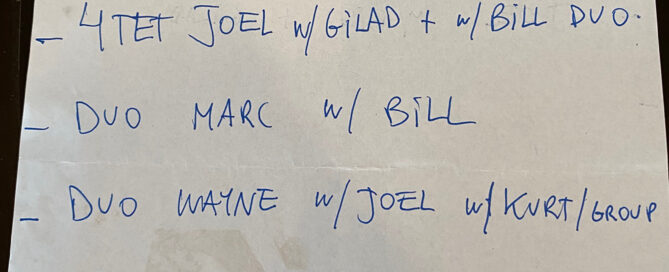 - 4TET JOEL w/GILAD + w/BILL DUO.
- DUO MARC w/ BILL
- DUO WAYNE w/JOEL w/KURT/GROUP